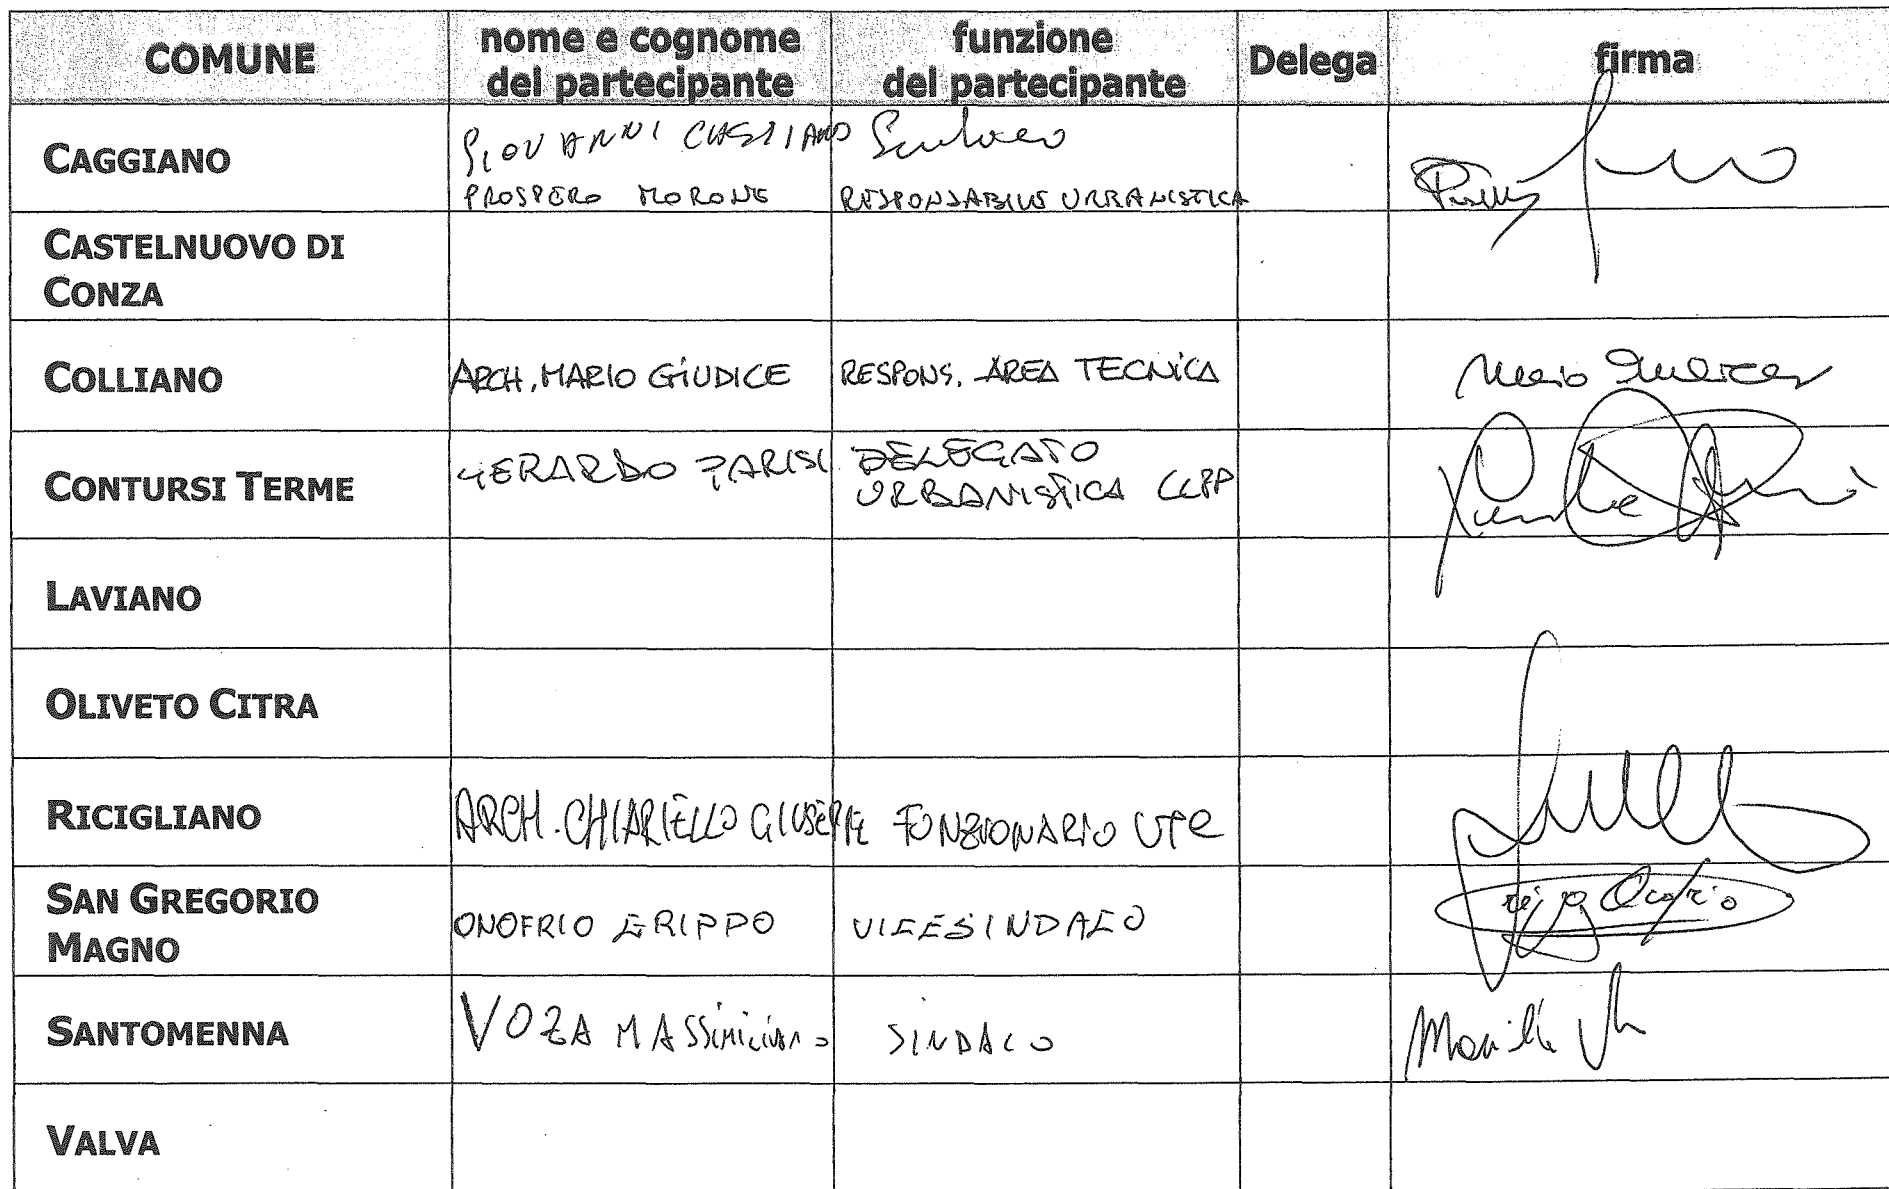 COMUNE
nome e cognome
del partecipante
funzione
del partecipante
Delega
firma
CAGGIANO
GIOVANNI CAGGIANO Sindaco
PROSPERO MORONE RESPONSABILE URBANISTICA
CASTELNUOVO DI
CONZA
COLLIANO
ARCH. MARIO GIUDICE
RESPONS. AREA TECNICA
Mario Giudice
CONTURSI TERME
GERARDO PARISI
DELEGATO
URBANISTICA LLPP
LAVIANO
OLIVETO CITRA
RICIGLIANO
ARCH. CHIARIELLO GIUSEPPE
FUNZIONARIO UTC
SAN GREGORIO
MAGNO
ONOFRIO GRIPPO
VICESINDACO
SANTOMENNA
VOZA MASSIMILIANO
SINDACO
VALVA